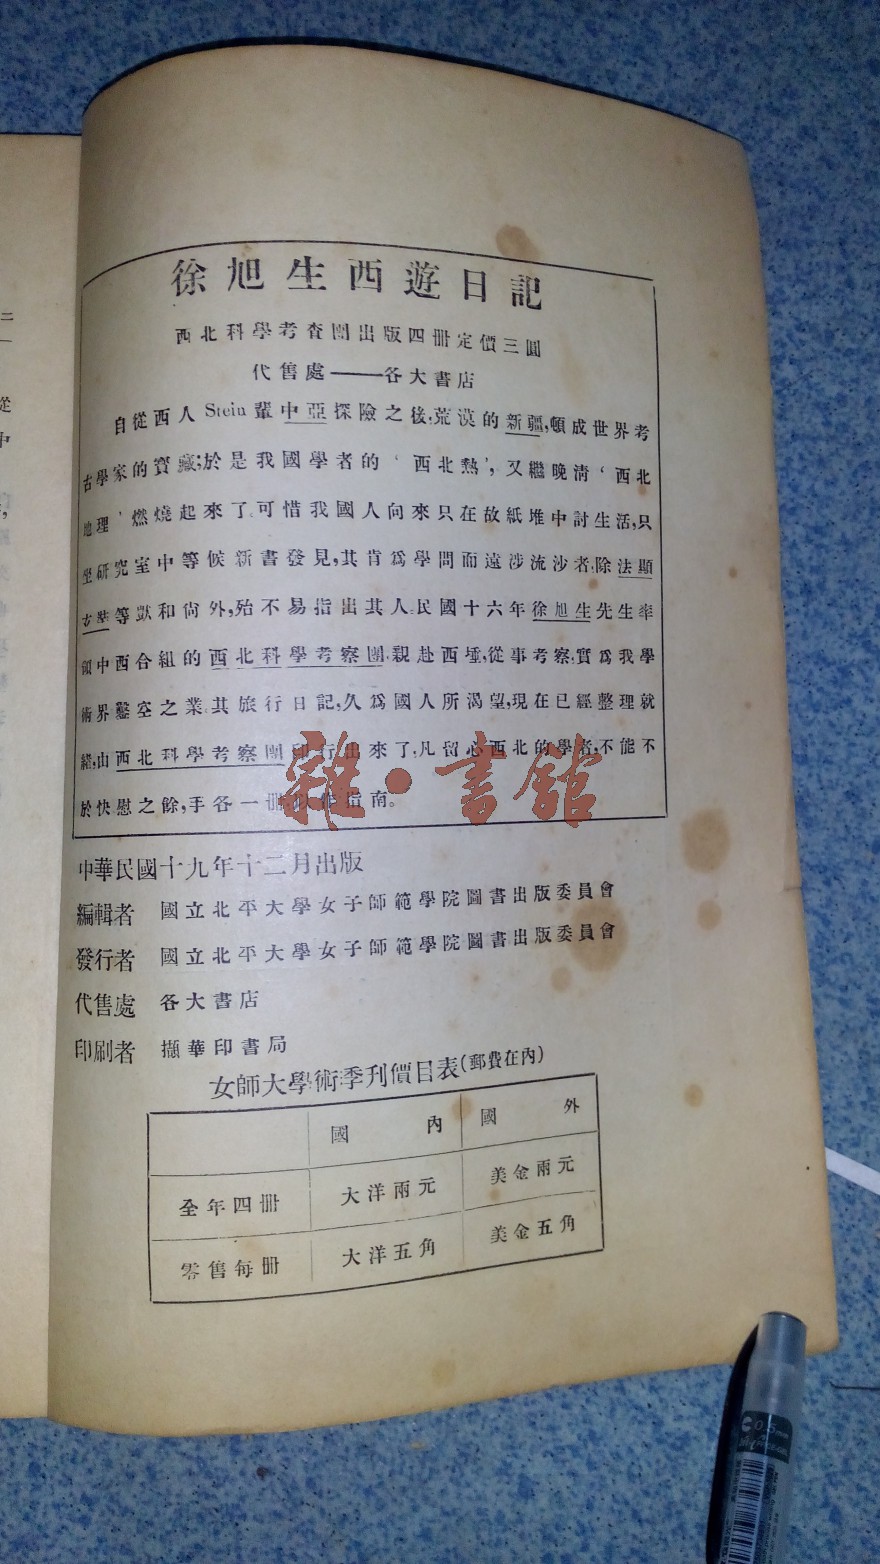 徐旭生西遊日記
西北科學考查團出版四冊定價三圓
代售處——各大書店
自從西人 Stein 輩中亞探險之後,荒漠的新疆,頓成世界考
古學家的寶藏;於是我國學者的‘西北熱’,又繼晚清‘西北
地理’燃燒起來了.可惜我國人向來只在故紙堆中討生活,只
坐研究室中等候新書發見,其肯爲學問而遠涉流沙者,除法顯
玄奘等獃和尙外,殆不易指出其人.民國十六年徐旭生先生率
領中西合組的西北科學考察團,親赴西埵,從事考察,實爲我學
術界鑿空之業.其旅行日記,久爲國人所渴望,現在已經整理就
緒,由西北科學考察團印行出來了.凡留心西北的學者,不能不
於快慰之餘,手各一冊,以作指南。
雜·書舘
中華民國十九年十二月出版
編輯者 國立北平大學女子師範學院圖書出版委員會
發行者 國立北平大學女子師範學院圖書出版委員會
代售處 各大書店
印刷者 擷華印書局
女師大學術季刊價目表(郵費在內)
國內 國外
全年四冊 大洋兩元 美金兩元
零售每冊 大洋五角 美金五角
二
從
中
0.5mm